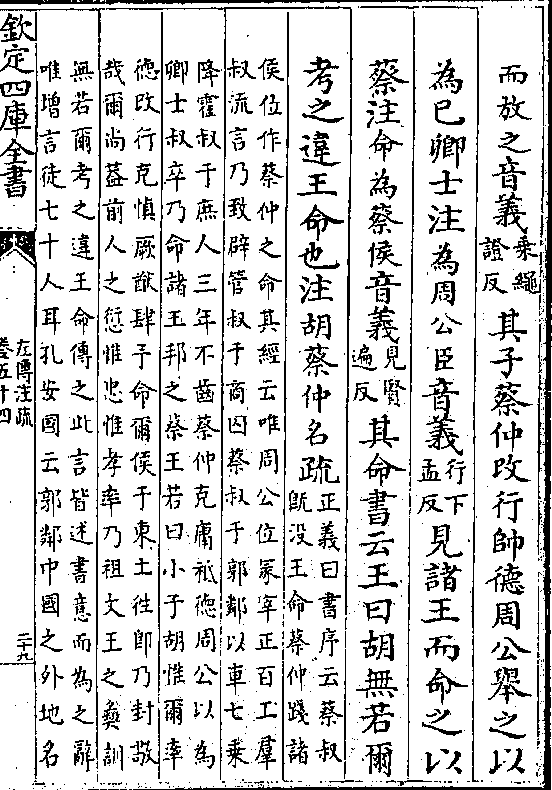 而放之音義乘繩證反其子蔡仲改行帥德周公舉之以
為已卿士注為周公臣音義行下孟反見諸王而命之以
蔡注命為蔡侯音義見賢遍反其命書云王曰胡無若爾
考之違王命也注胡蔡仲名疏正義曰書序云蔡叔
既没王命蔡仲踐諸
侯位作蔡仲之命其經云唯周公位冡宰正百工羣
叔流言乃致辟管叔于商囚蔡叔于郭鄰以車七乗
降霍叔于庶人三年不齒蔡仲克庸祗德周公以為
卿士叔卒乃命諸王邦之蔡王若曰小子胡惟爾率
德改行克慎厥猷肆予命爾侯于東土徃即乃封敬
哉爾尚葢前人之愆惟忠惟孝率乃祖文王之彝訓
無若爾考之違王命傳之此言皆述書意而為之辭
唯增言徒七十人耳孔安國云郭鄰中國之外地名
欽定四庫全書
左傳注疏
卷五十四
二十九